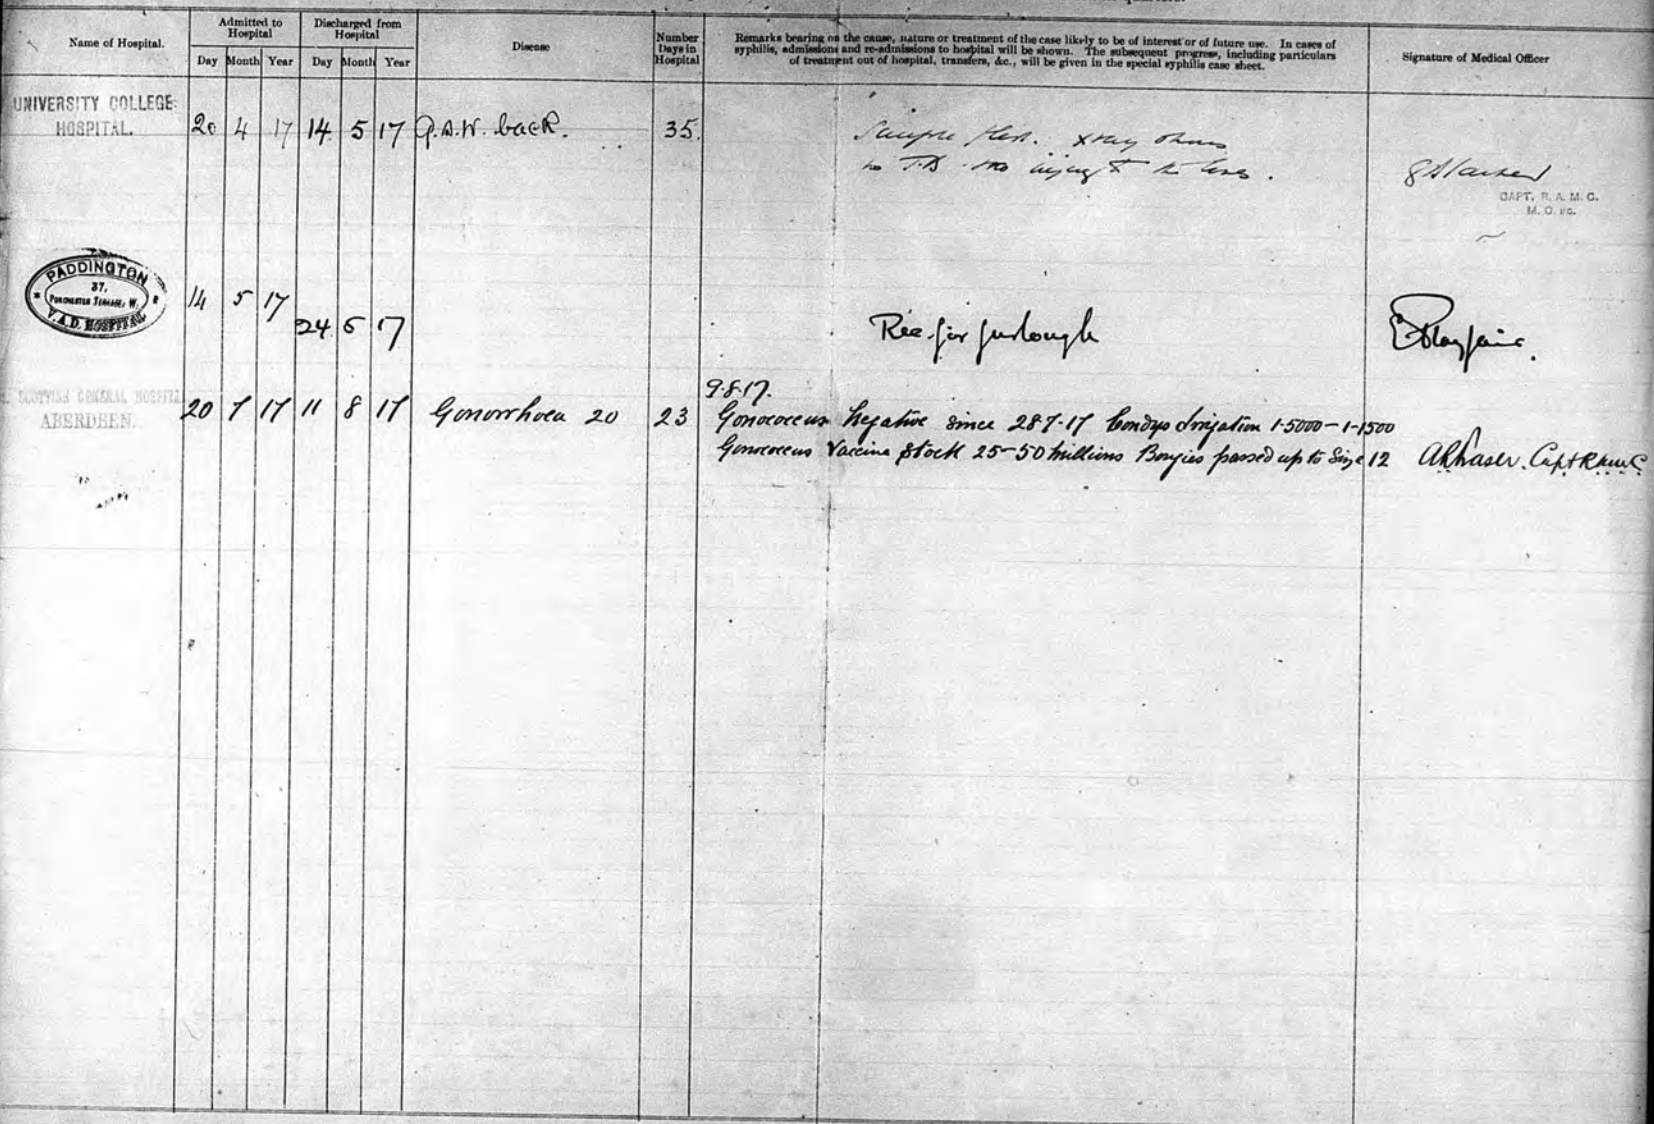 Name of Hospital.
Admitted to Hospital
Discharged from Hospital
Disease
Number Days in Hospital
Remarks bearing on the cause, nature or treatment of the case likely to be of interest or of future use. In cases of
syphilis, admissions and re-admissions to hospital will be shown. The subsequent progress, including particulars
of treatment out of hospital, transfers, &c., will be given in the special syphilis case sheet.
Signature of Medical Officer
Day Month Year Day Month Year
UNIVERSITY COLLEGE
HOSPITAL.
20 4 17 14 5 17 G.S.W. back. 35.
Xray shows
no T.B. no injury to the
CAPT. R. A. M. C.
M. O. i/c.
PADDINGTON
37,
PORCHESTER TERRACE, W.
V.A.D. HOSPITAL
14 5 17
24 5 17
Rec. for furlough
SCOTTISH GENERAL HOSPITAL
ABERDEEN.
20 7 17 11 8 17 Gonorrhoea 20 23
9.8.17.
Gonococcus Negative since 28.7.17 Condys Irrigation 1-5000 - 1-1500
Gonococcus Vaccine Stock 25-50 millions Bougies passed up to Size 12
Capt RAMC